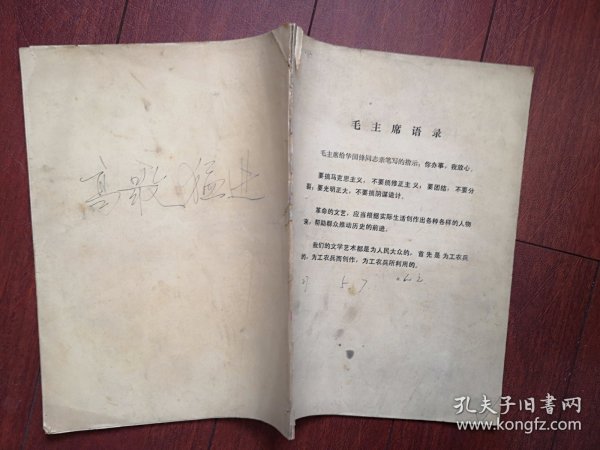 毛主席语录
毛主席给华国锋同志亲笔写的指示：你办事，我放心。
要搞马克思主义，不要搞修正主义；要团结，不要分
裂；要光明正大，不要搞阴谋诡计。
革命的文艺，应当根据实际生活创作出各种各样的人物
来，帮助群众推动历史的前进。
我们的文学艺术都是为人民大众的，首先是为工农兵
的，为工农兵而创作，为工农兵所利用的。
5 7
猛进
孔夫子旧书网
www.kongfz.com